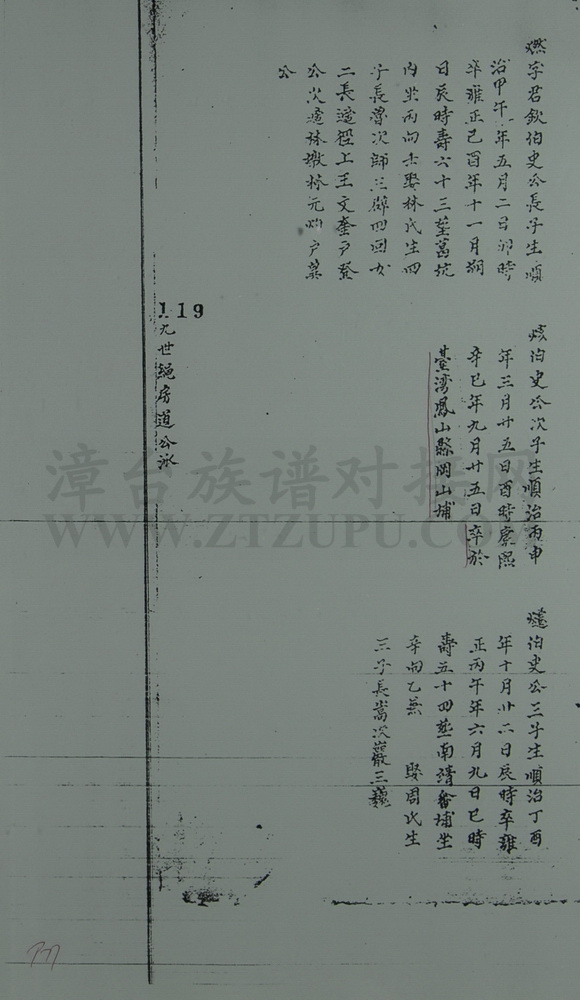 燃字君欽伯史公長子生順
治甲午年五月二日卯時
卒雍正己酉年十一月朔
日辰時壽六十三葬萬坑
內坐丙向壬娶林氏生四
子長魯次師三辟四回女
二長適徑上王文奎户登
公次適林墩林元灼户葉
公
伯史公次子生順治丙申
年三月廿五日酉時康熙
辛巳年九月廿五日卒於
臺湾鳳山縣岡山埔
伯史公三子生順治丁酉
年十月廿二日辰時卒雍
正丙午年六月九日巳時
壽五十四葬南靖番埔坐
辛向乙兼 娶周氏生
三子長嵩次巖三巍
119
九世絕房道公派
漳台族谱对接网
WWW.ZTZUPU.COM